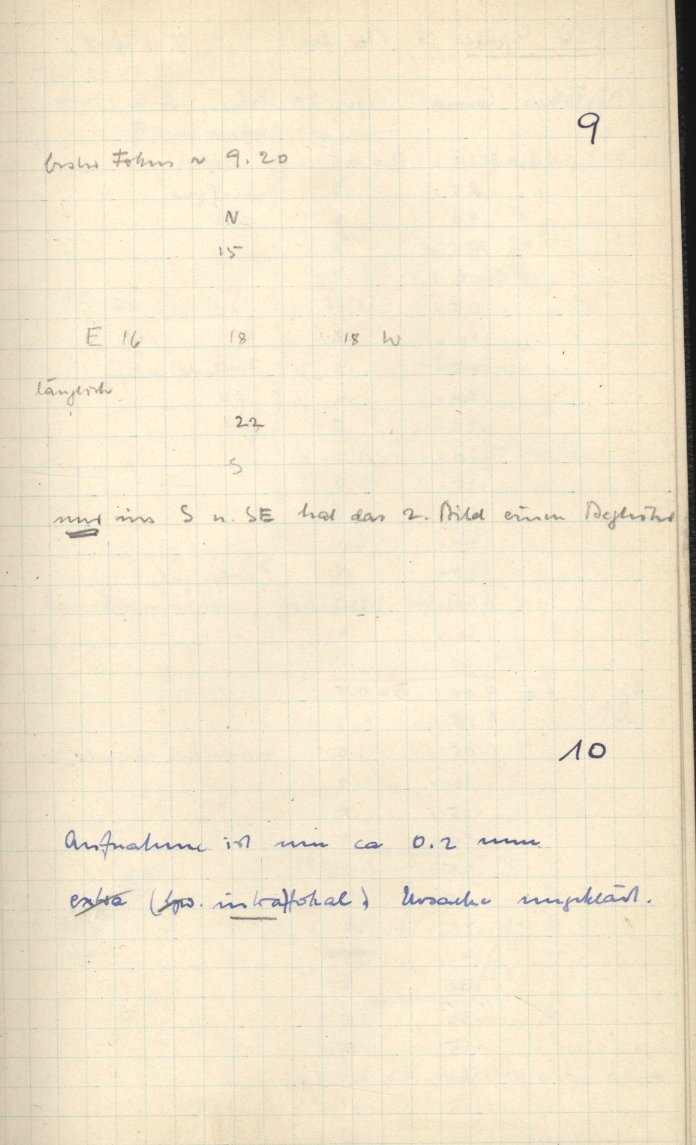 9
bester Fokus ~ 9.20
N
15
E 16 18 18 W
länglich
22
S
nur im S u. SE hat das 2. Bild einen Begleiter
10
Aufnahme ist um ca 0.2 mm
extra (bzw. intra)fokal, Ursache ungeklärt.